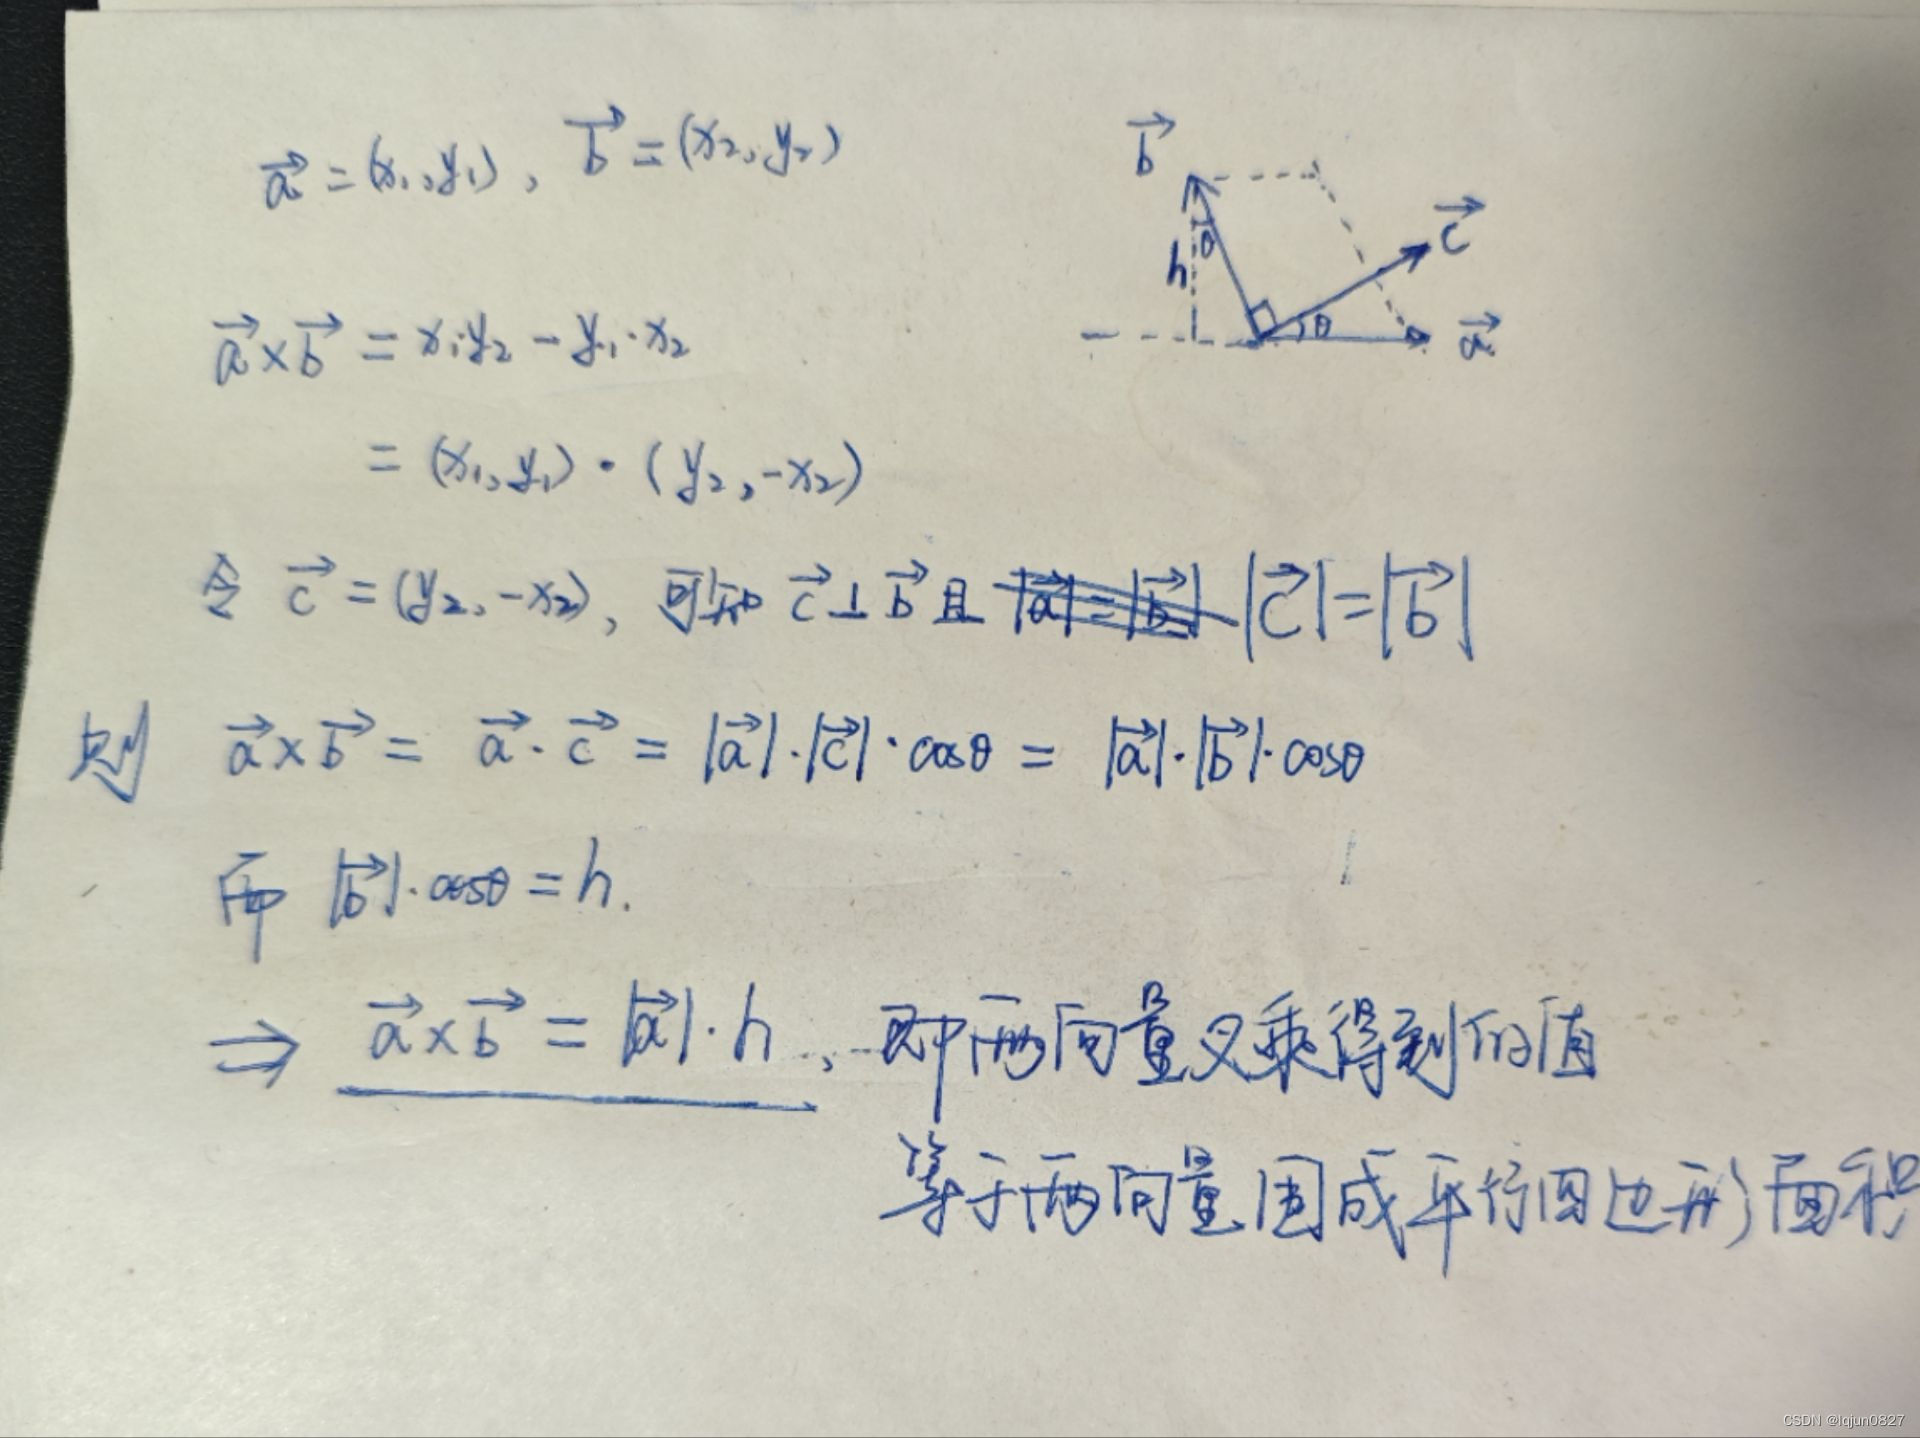 a⃗ = (x₁, y₁), b⃗ = (x₂, y₂)
b⃗
c⃗
h
θ
θ
a⃗
a⃗×b⃗ = x₁·y₂ − y₁·x₂
= (x₁, y₁) · (y₂, −x₂)
令 c⃗ = (y₂, −x₂), 可知 c⃗⊥b⃗ 且 |a⃗|=|b⃗| |c⃗|=|b⃗|
则 a⃗×b⃗ = a⃗·c⃗ = |a⃗|·|c⃗|·cosθ = |a⃗|·|b⃗|·cosθ
而 |b⃗|·cosθ = h.
⇒ a⃗×b⃗ = |a⃗|·h, 即两向量叉乘得到的值
等于两向量围成平行四边形面积
CSDN @lqjun0827